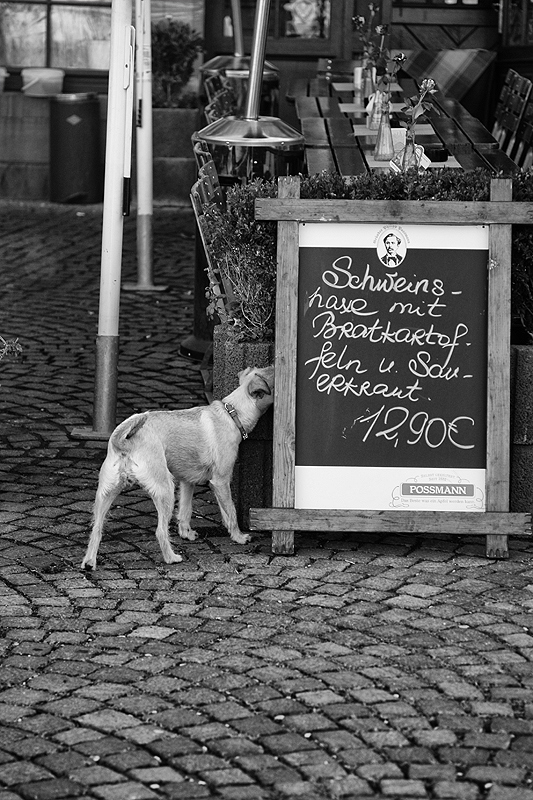 Schweins-
haxe mit
Bratkartof-
feln u. Sau-
erkraut.
12,90€
POSSMANN